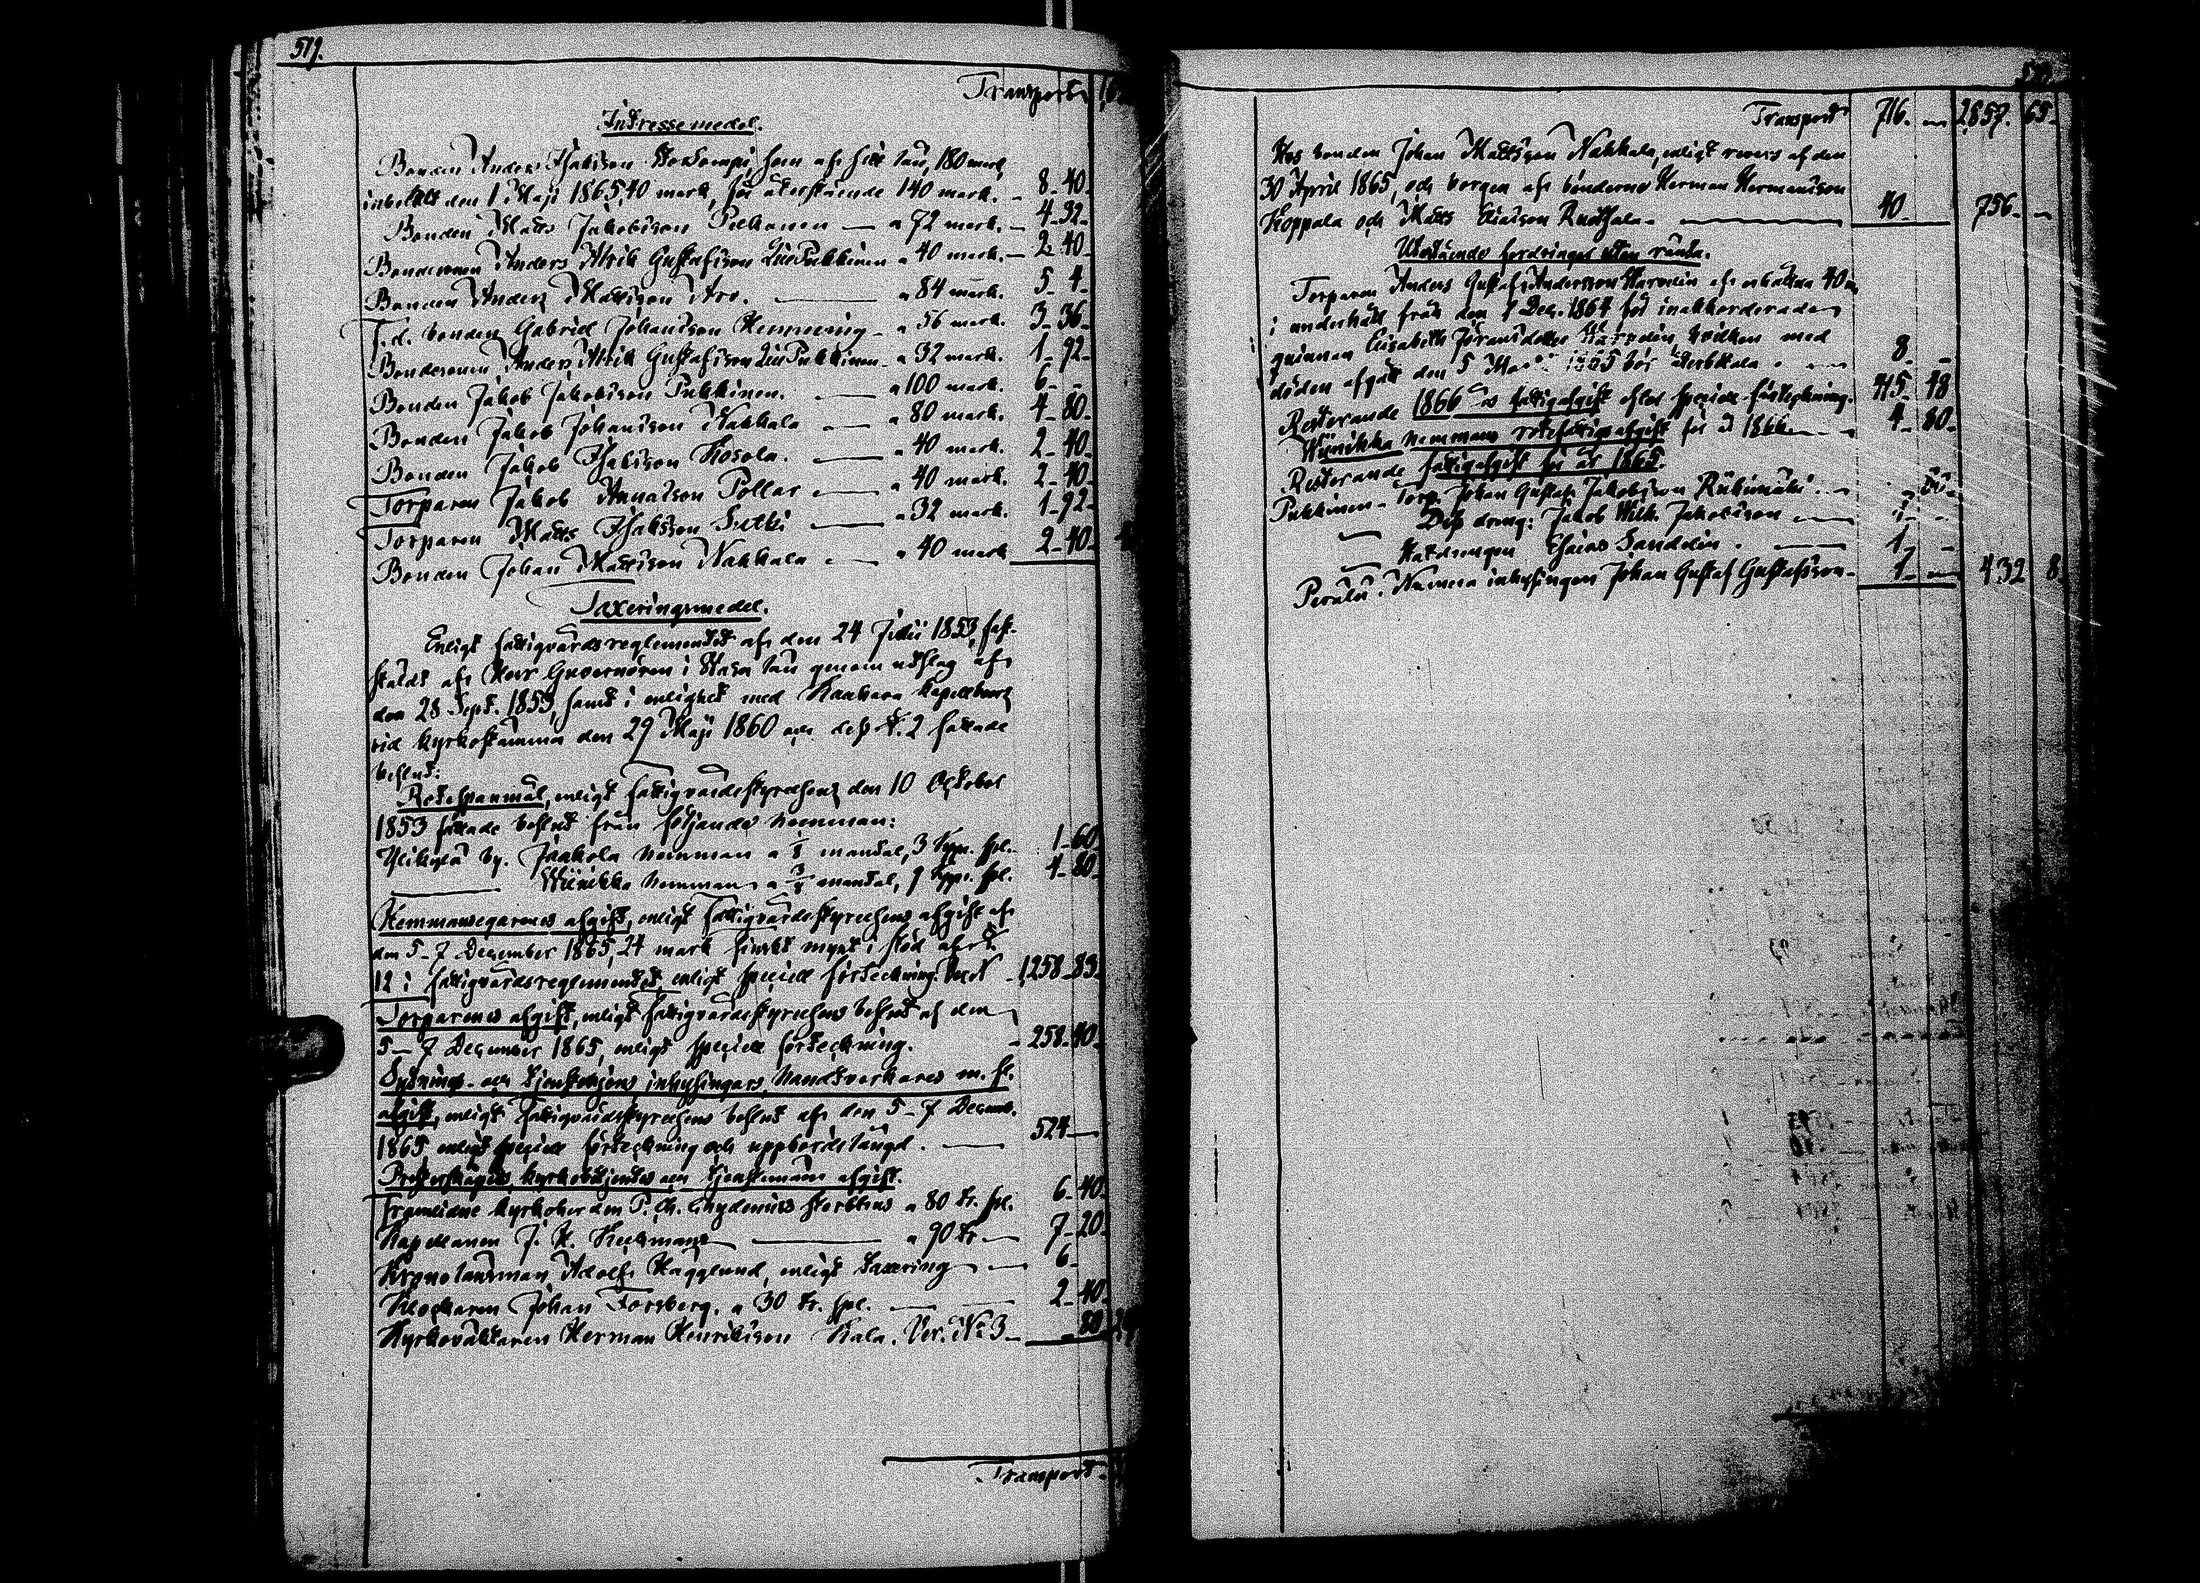 519.
Transport
Intressemedel.
Bonden Anders Isaksson Stortompi, som af sitt lån, 180 mark
inbetalt den 1 Maji 1865, 40 mark, för återstående 140 mark. 8 40
Bonden Matts Jakobsson Pukkonen a 72 mark. 4 32
Bondesonen Anders Alrik Gustafsson Lill Pukkinen a 40 mark. 2 40
Bonden Anders Mattsson Aro. a 84 mark. 5 4
F.d. bonden Gabriel Johansson Hemming a 56 mark. 3 36
Bondesonen Anders Alrik Gustafsson Lill Pukkinen a 32 mark. 1 92
Bonden Jakob Jakobsson Pukkinen. a 100 mark. 6
Bonden Jakob Johansson Nahkala a 80 mark. 4 80
Bonden Jakob Isaksson Kosola. a 40 mark. 2 40
Torparen Jakob Pollar a 40 mark. 2 40
Torparen Matts Isaksson a 32 mark. 1 92
Bonden Johan Mattsson Nahkala a 40 mark 2 40
Taxeringsmedel.
Enligt fattigvårdsreglementet af den 24 Julii 1853, fast-
stäldt af Herr Guvernören i Wasa län genom utslag af
den 28 Sept. 1853, samt i enlighet med Kauhava kapellboers
vid kyrkostämma den 29 Maji 1860 och dess §. 2 fattade
beslut:
Rotespanmål, enligt fattigvårdsstyrelsens den 10 Oktober
1853 fattade beslut från följande hemman:
Ylikylä by. Jaakola hemman a 1/8 mantal, 3 kpr. spl. 1 60
Wiinikka hemman a 3/8 mantal, 9 kpr. spl. 4 80
Hemmansegarenes afgift, enligt fattigvårdsstyrelsens afgift af
den 5-7 December 1865, 24 mark finskt mynt i stöd af §
12 i fattigvårdsreglementet, enligt speciell förteckning. 1258 83
Torparenes afgift, enligt fattigvårdsstyrelsens beslut af den
5-7 December 1865, enligt speciell förteckning. 258 40
Sytnings- och tjenstehjons, inhysingars, handtverkares m. fl.
afgift, enligt fattigvårdsstyrelsens beslut af den 5-7 Decemb.
1865, enligt speciell förteckning och uppbördslängd. 524
Presterskapets, kyrkobetjentes och tjenstemäns afgift.
Framlidne kyrkoherden P. A. Chydenius sterbhus a 80 kr. spl. 6 40
Kapellanen J. K. a 90 kr 7 20
Kronolänsman Adolf Hägglund, enligt taxering 6
Klockaren Johan Forsberg, a 30 kr. spl. 2 40
Kyrkovaktaren Herman Henriksson Kala. Ver. No 3 80
Transport
Transport 716. 2857. 65
Hos bonden Johan Mattsson Nahkala, enligt revers af den
30 April 1865, och borgen af bönderne Herman Hermansson
Koppala och Matts Eliasson Ruotsala 40 756
Utestående fordringar utan ränta.
Torparen Anders Gustaf Andersson af erhållna 40 m
i underhåll från den 1 Dec. 1864 för inackorderade
qvinnan Elisabeth Göransdotter hvilken med
döden afgått den 5 1865 bör återbetala 8
Resterande 1866 års fattigafgift efter speciell förteckning. 415 48
Wiinikka hemmans rotefattigafgift för år 1866 4 80
Resterande fattigafgift för år 1865.
Pukkinen. Torp. Johan Gustaf Jakobsson Riihimäki 80
Dess dräng: Jakob Wilh. Jakobsson 1
Esaias Sanddin. 1
Perälä. Numera inhysingen Johan Gustaf Gustafsson 1 432 8